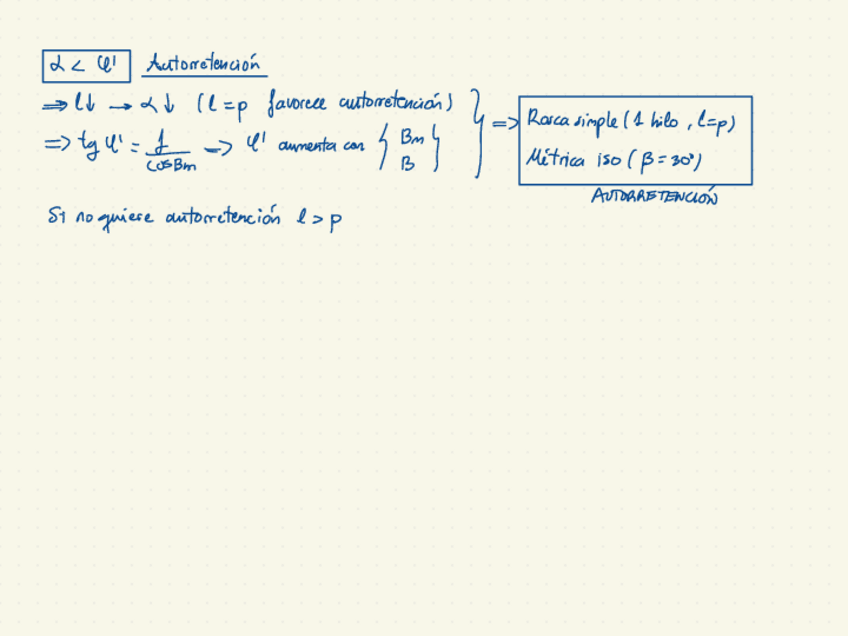 α < φ' Autorretención
⇒ l↓ → α↓ (l = p favorece autorretención)
⇒ tg φ' = f / cos βm → φ' aumenta con { βm β }
⇒ Rosca simple (1 hilo, l=p)
Métrica iso (β = 30°)
AUTORRETENCIÓN
Si no quiere autorretención l > p